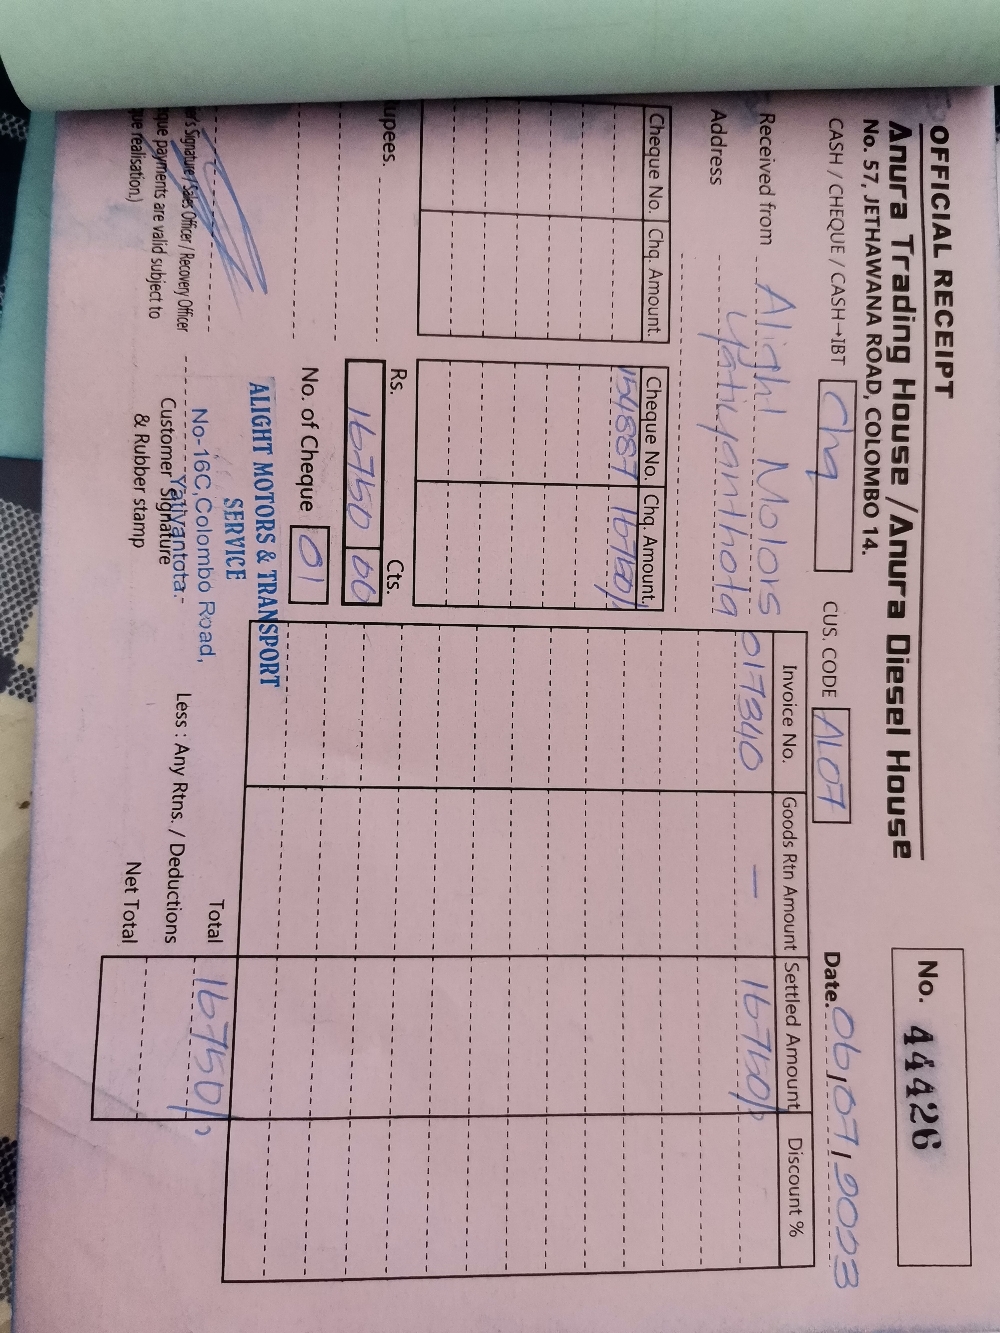 OFFICIAL RECEIPT
No. 44426
Anura Trading House / Anura Diesel House
No. 57, JETHAWANA ROAD, COLOMBO 14.
CASH / CHEQUE / CASH→IBT Chq CUS. CODE AL07 Date. 06/07/2023
Received from Alight Motors
Address Yatiyanthota
Cheque No. Chq. Amount. Cheque No. Chq. Amount.
154887 16750/
Invoice No. Goods Rtn Amount Settled Amount Discount %
017340 — 16750/
upees. Rs. Cts.
16750 00
No. of Cheque 01
ALIGHT MOTORS & TRANSPORT
SERVICE
No-16C, Colombo Road,
Yatiyantota.
Total 16750/
Less : Any Rtns. / Deductions
Net Total
er's Signature / Sales Officer / Recovery Officer
que payments are valid subject to
ue realisation.)
Customer Signature
& Rubber stamp